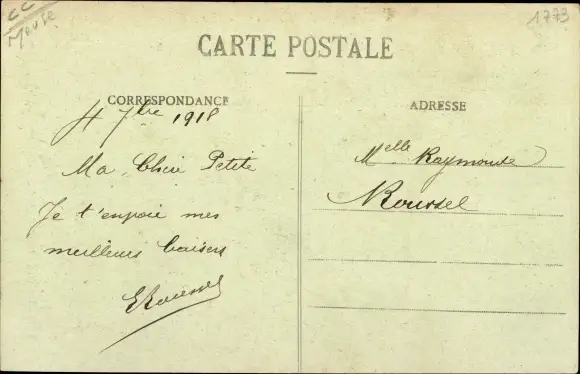 CC
Meuse
1773
CARTE POSTALE
CORRESPONDANCE
4 7bre 1918
Ma Chère Petite
Je t'envoie mes
meilleurs baisers
ERoussel
ADRESSE
Melle Raymonde
Roussel